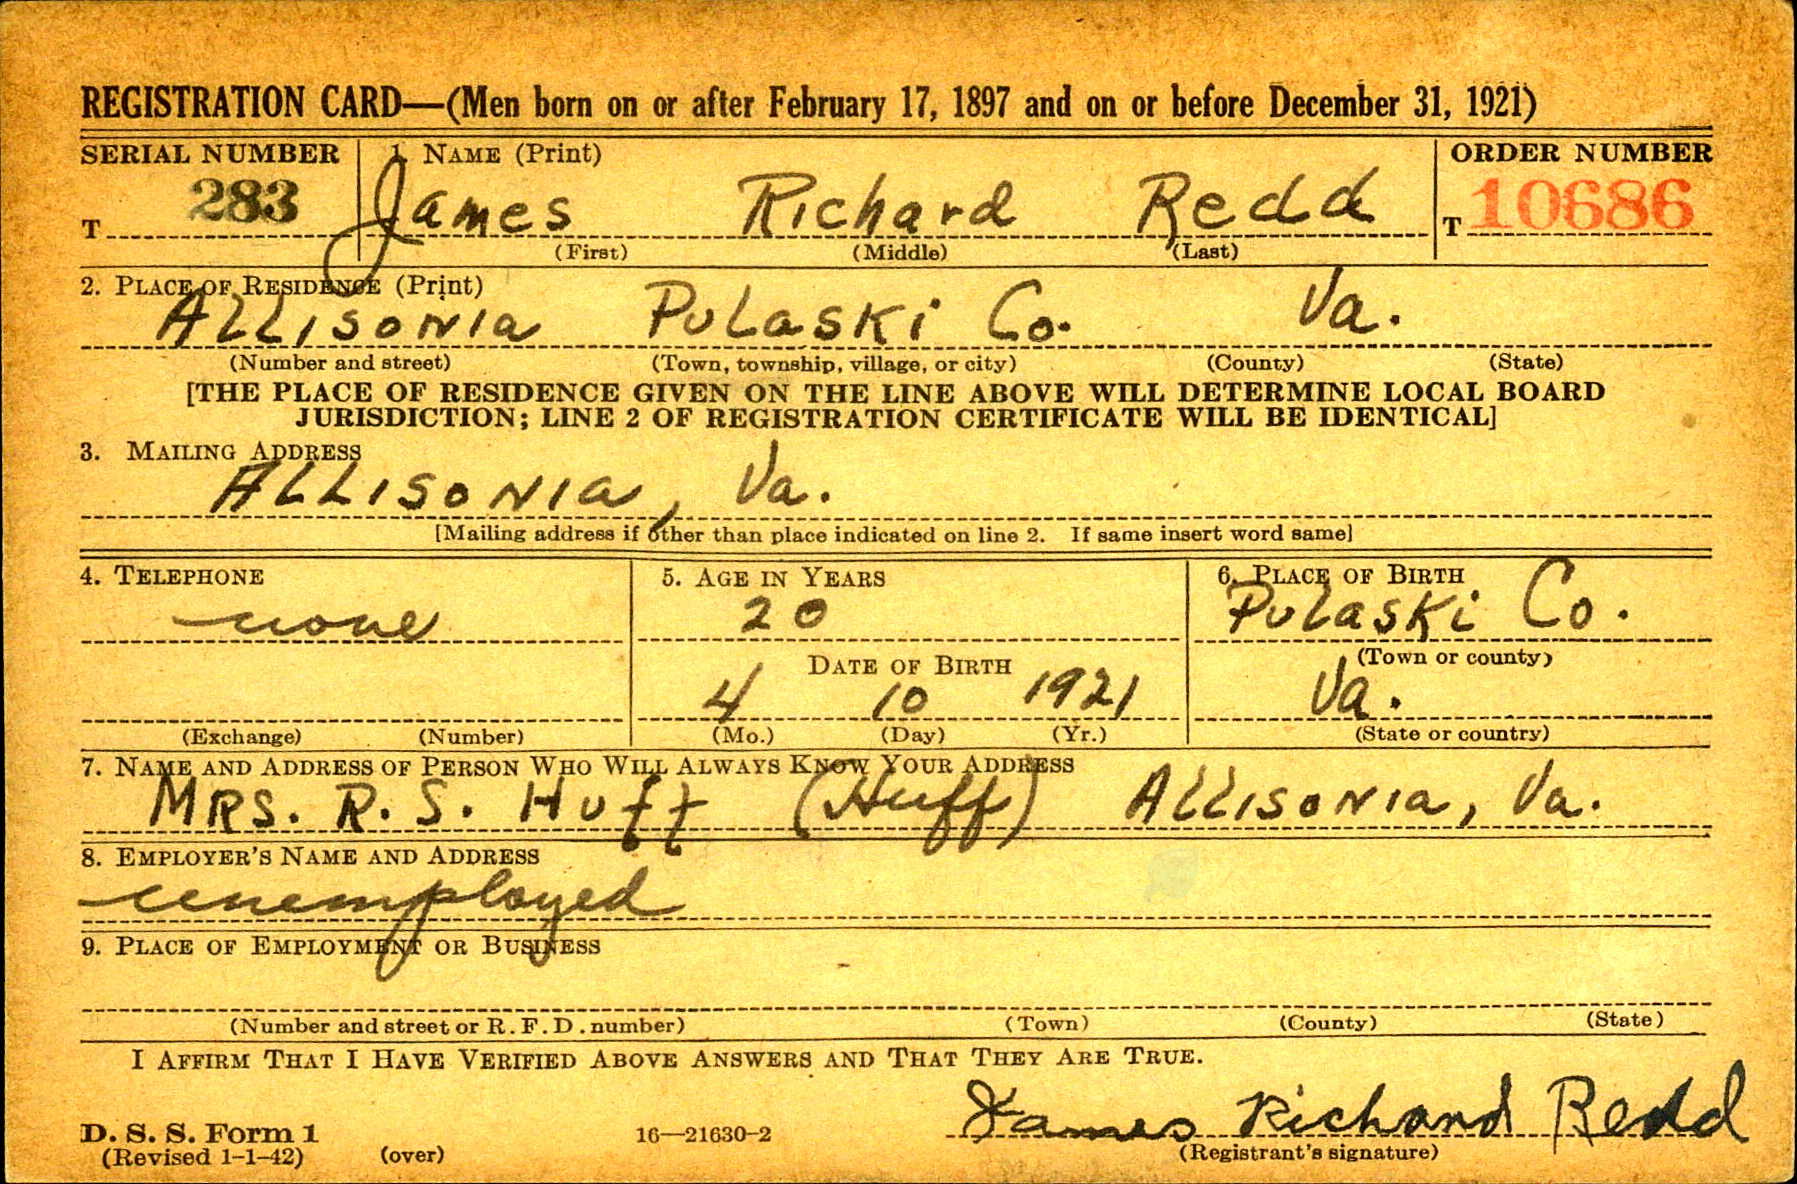 REGISTRATION CARD—(Men born on or after February 17, 1897 and on or before December 31, 1921)
SERIAL NUMBER 1. NAME (Print) ORDER NUMBER
T 283 James Richard Redd T 10686
(First) (Middle) (Last)
2. PLACE OF RESIDENCE (Print)
ALLISONIA PULASKI Co. Va.
(Number and street) (Town, township, village, or city) (County) (State)
[THE PLACE OF RESIDENCE GIVEN ON THE LINE ABOVE WILL DETERMINE LOCAL BOARD
JURISDICTION; LINE 2 OF REGISTRATION CERTIFICATE WILL BE IDENTICAL]
3. MAILING ADDRESS
ALLISONIA, Va.
[Mailing address if other than place indicated on line 2. If same insert word same]
4. TELEPHONE 5. AGE IN YEARS 6. PLACE OF BIRTH
none 20 PULASKI Co.
DATE OF BIRTH (Town or county)
4 10 1921 Va.
(Exchange) (Number) (Mo.) (Day) (Yr.) (State or country)
7. NAME AND ADDRESS OF PERSON WHO WILL ALWAYS KNOW YOUR ADDRESS
MRS. R. S. Huff (Huff) ALLISONIA, Va.
8. EMPLOYER'S NAME AND ADDRESS
unemployed
9. PLACE OF EMPLOYMENT OR BUSINESS
(Number and street or R. F. D. number) (Town) (County) (State)
I AFFIRM THAT I HAVE VERIFIED ABOVE ANSWERS AND THAT THEY ARE TRUE.
James Richard Redd
D. S. S. Form 1 16—21630-2
(Revised 1-1-42) (over) (Registrant's signature)